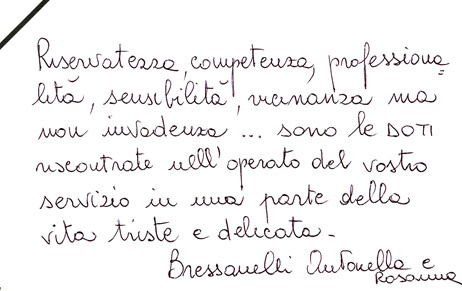 Riservatezza, competenza, professiona=
lità, sensibilità, vicinanza ma
non invadenza ... sono le DOTI
riscontrate nell'operato del vostro
servizio in una parte della
vita triste e delicata.
Bressanelli Antonella e
Rosanna